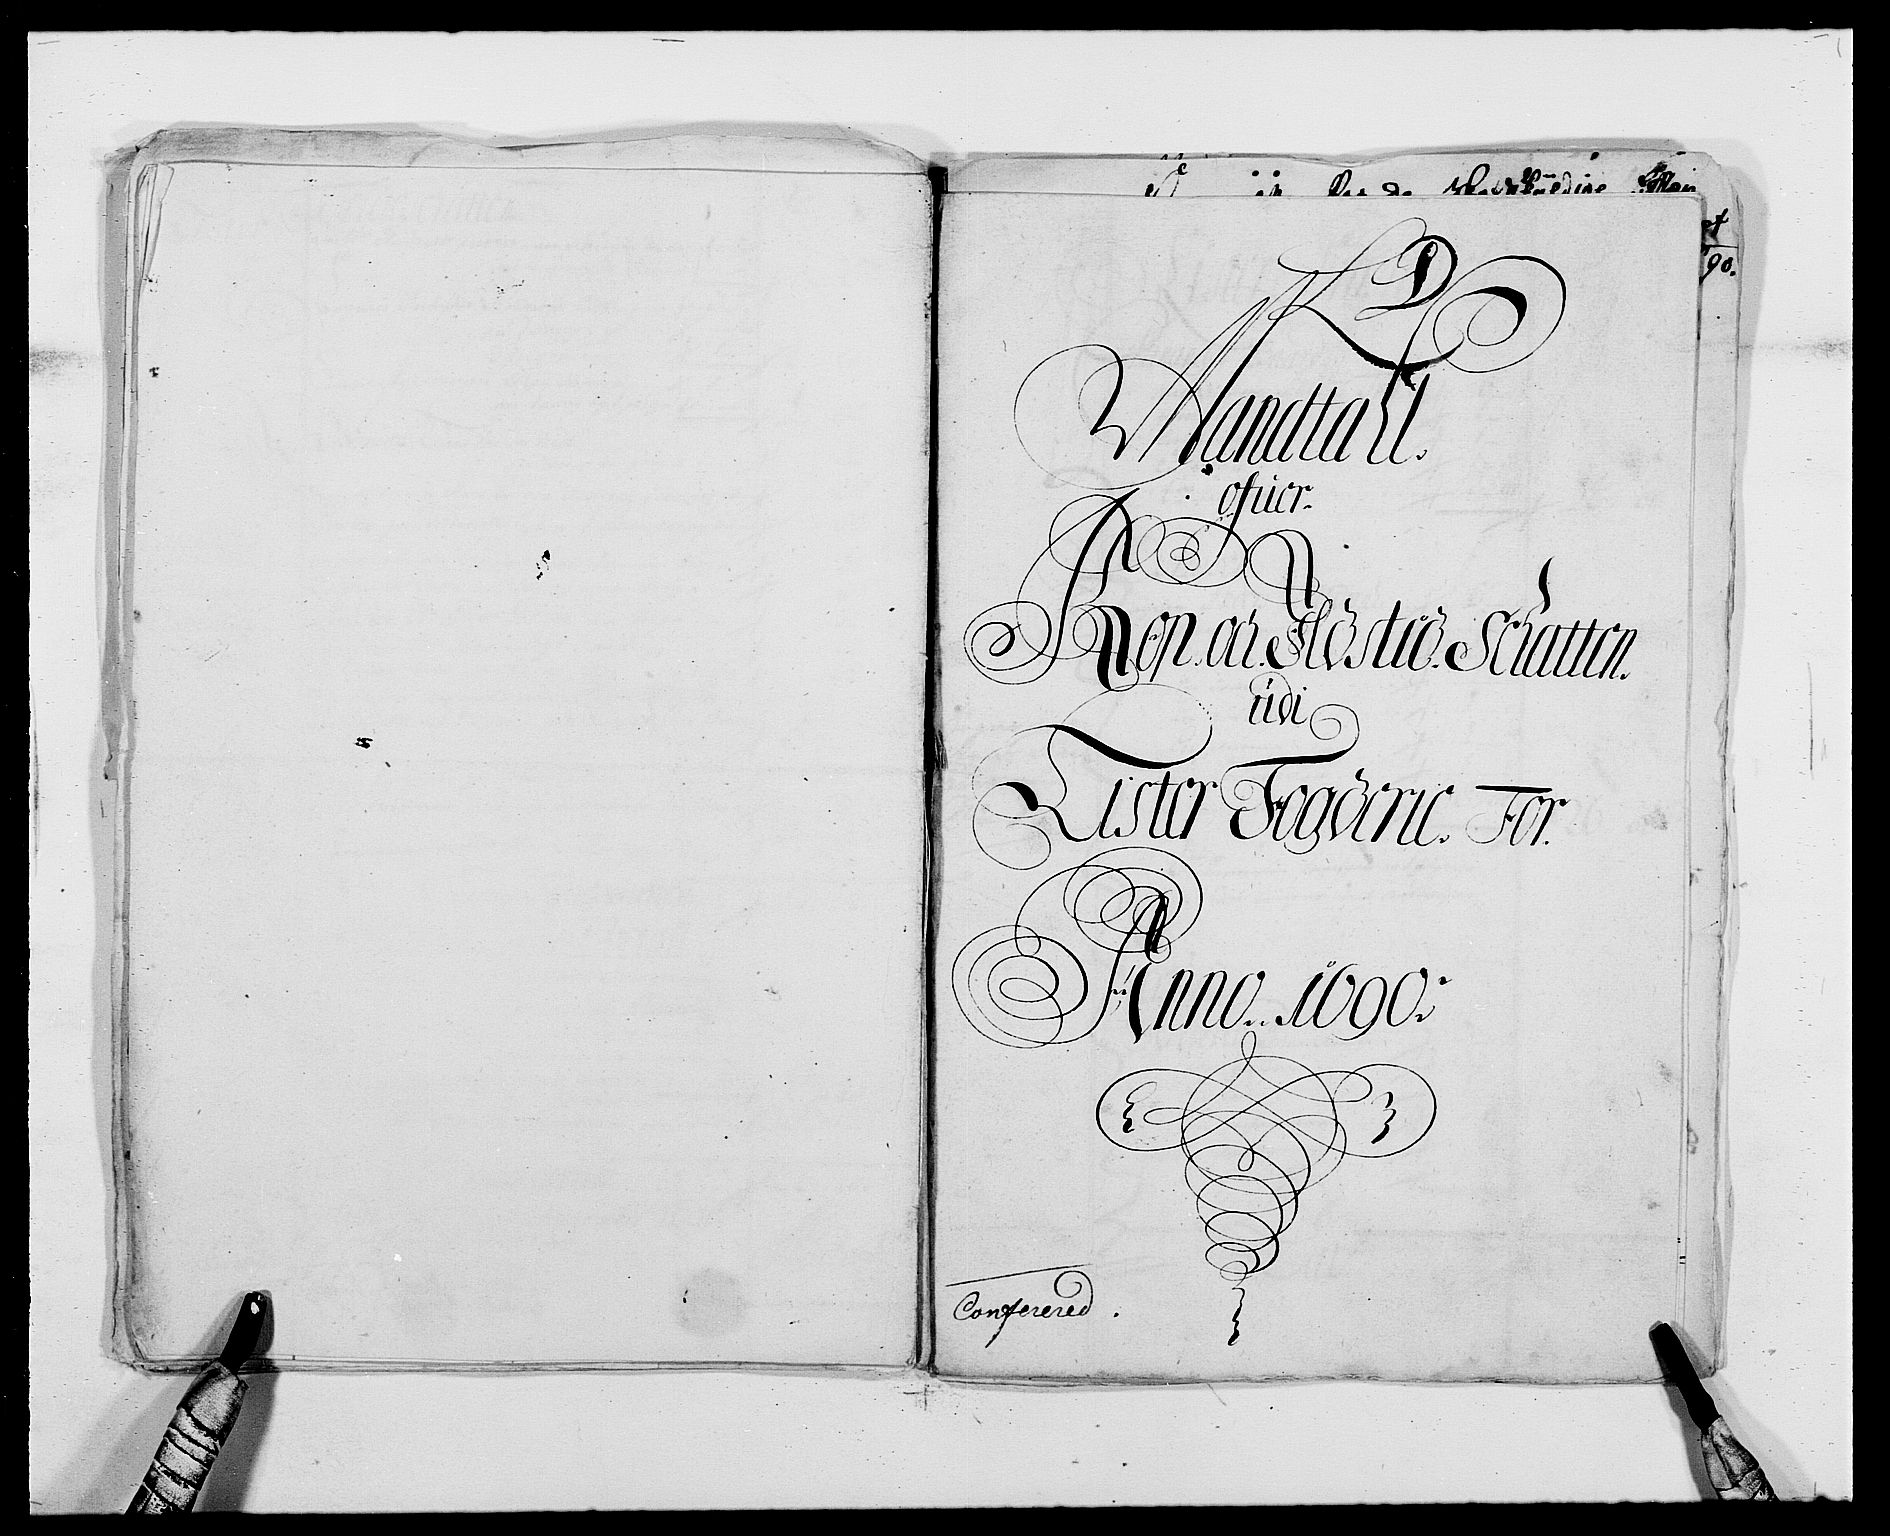 LD
Mandtall.
ofuer.
Kop. oc. Ildsted. Schatten.
udi
Lister Fogderie. For.
Anno. 1690.
Conferered.
90.